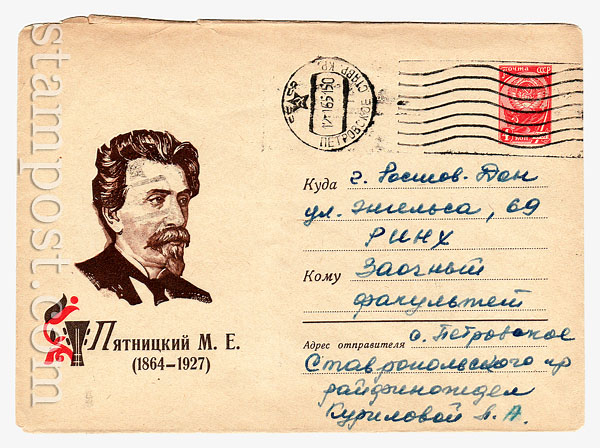 stampost.com
ПОЧТА СССР
СССР
ПЕТРОВСКОЕ СТАВР. КР.
Куда г. Ростов-Дон
ул. Энгельса, 69
РИНХ
Кому Заочный
факультет
Пятницкий М. Е.
(1864—1927)
Адрес отправителя с. Петровское
Ставропольского кр
райфинотдел
Куриловой А.